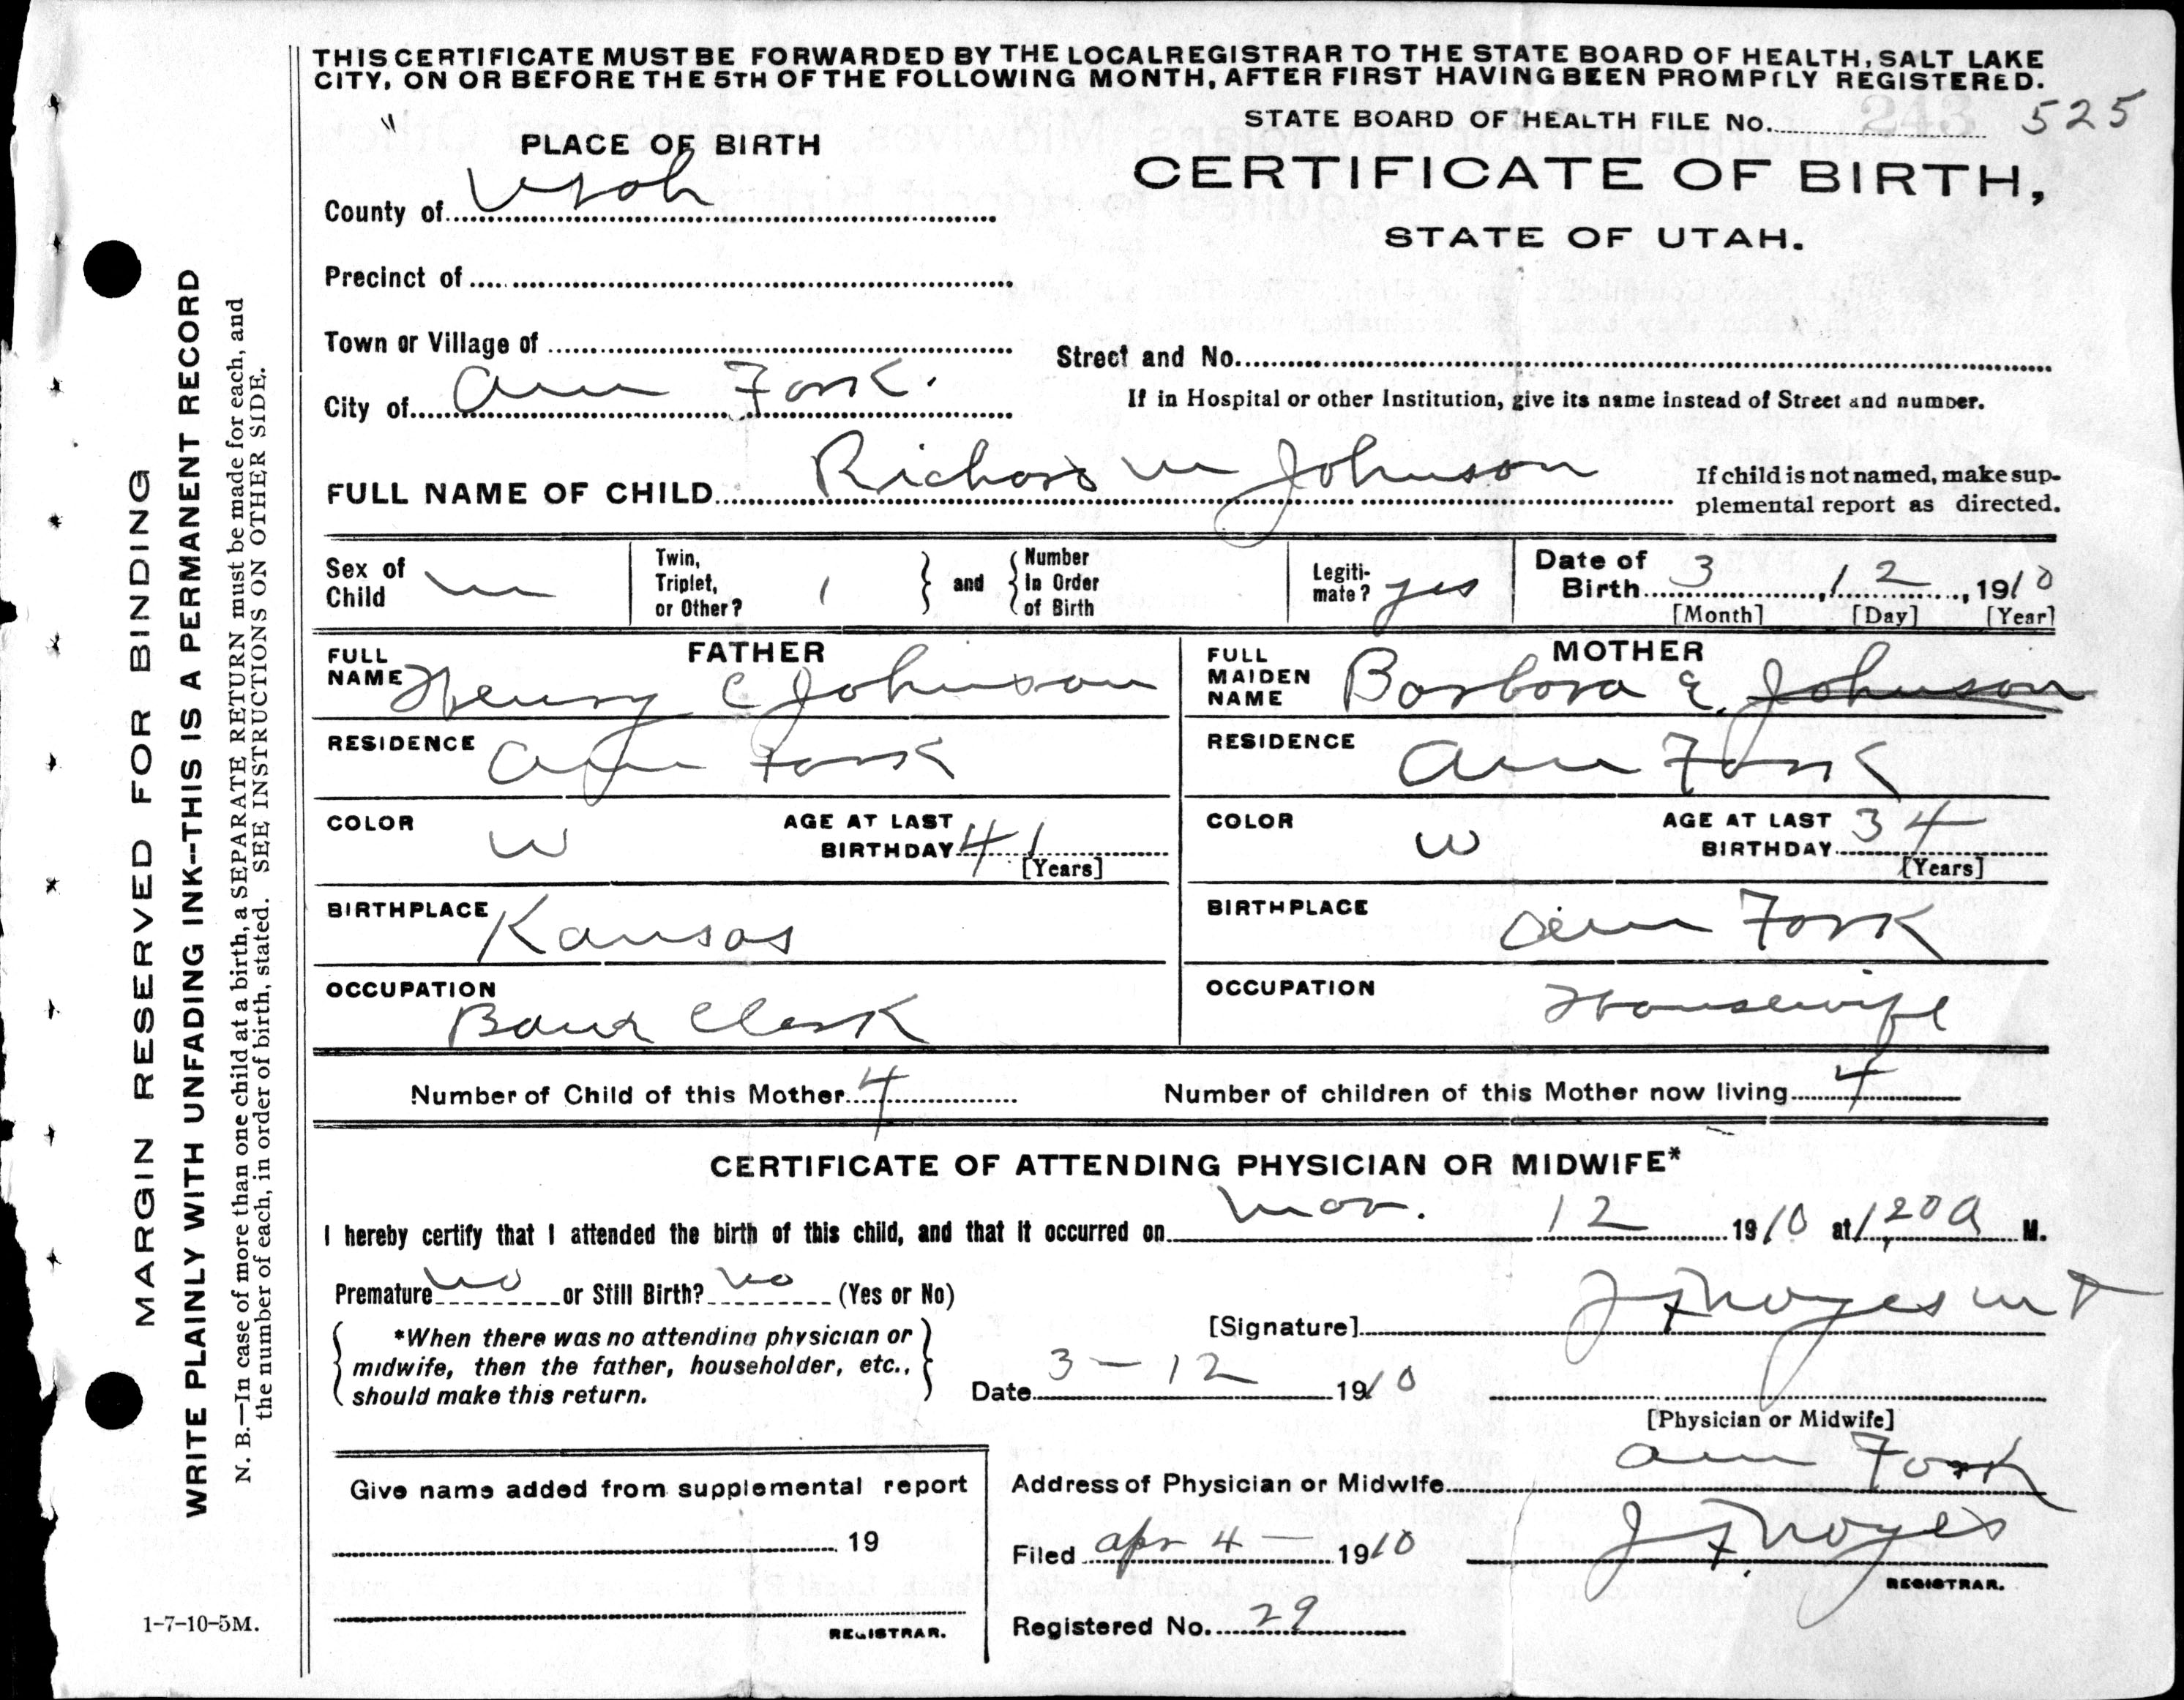 THIS CERTIFICATE MUST BE FORWARDED BY THE LOCAL REGISTRAR TO THE STATE BOARD OF HEALTH, SALT LAKE
CITY, ON OR BEFORE THE 5TH OF THE FOLLOWING MONTH, AFTER FIRST HAVING BEEN PROMPTLY REGISTERED.
STATE BOARD OF HEALTH FILE No. 243 525
PLACE OF BIRTH
CERTIFICATE OF BIRTH,
STATE OF UTAH.
County of Utah
Precinct of
Town or Village of
Street and No.
City of Am Fork.
If in Hospital or other Institution, give its name instead of Street and number.
FULL NAME OF CHILD Richard M Johnson
If child is not named, make sup-
plemental report as directed.
Sex of Child m
Twin, Triplet, or Other? 1
and
Number In Order of Birth
Legiti-mate? yes
Date of Birth 3, 12, 1910
[Month] [Day] [Year]
FATHER
FULL NAME Henry C Johnson
RESIDENCE Am Fork
COLOR W
AGE AT LAST BIRTHDAY 41
[Years]
BIRTHPLACE Kansas
OCCUPATION Clerk
MOTHER
FULL MAIDEN NAME Barbara E. Johnson
RESIDENCE Am Fork
COLOR W
AGE AT LAST BIRTHDAY 34
[Years]
BIRTHPLACE Am Fork
OCCUPATION Housewife
Number of Child of this Mother 4
Number of children of this Mother now living 4
CERTIFICATE OF ATTENDING PHYSICIAN OR MIDWIFE*
I hereby certify that I attended the birth of this child, and that it occurred on Mar. 12 1910 at 1,20 A M.
Premature no or Still Birth? no (Yes or No)
*When there was no attending physician or
midwife, then the father, householder, etc.,
should make this return.
[Signature] J F Noyes M D
Date 3-12 1910
[Physician or Midwife]
Give name added from supplemental report
19
REGISTRAR.
Address of Physician or Midwife Am Fork
Filed Apr 4 - 1910
J F Noyes
REGISTRAR.
Registered No. 29
1-7-10-5M.
MARGIN RESERVED FOR BINDING
WRITE PLAINLY WITH UNFADING INK--THIS IS A PERMANENT RECORD
N. B.—In case of more than one child at a birth, a SEPARATE RETURN must be made for each, and
the number of each, in order of birth, stated. SEE INSTRUCTIONS ON OTHER SIDE.